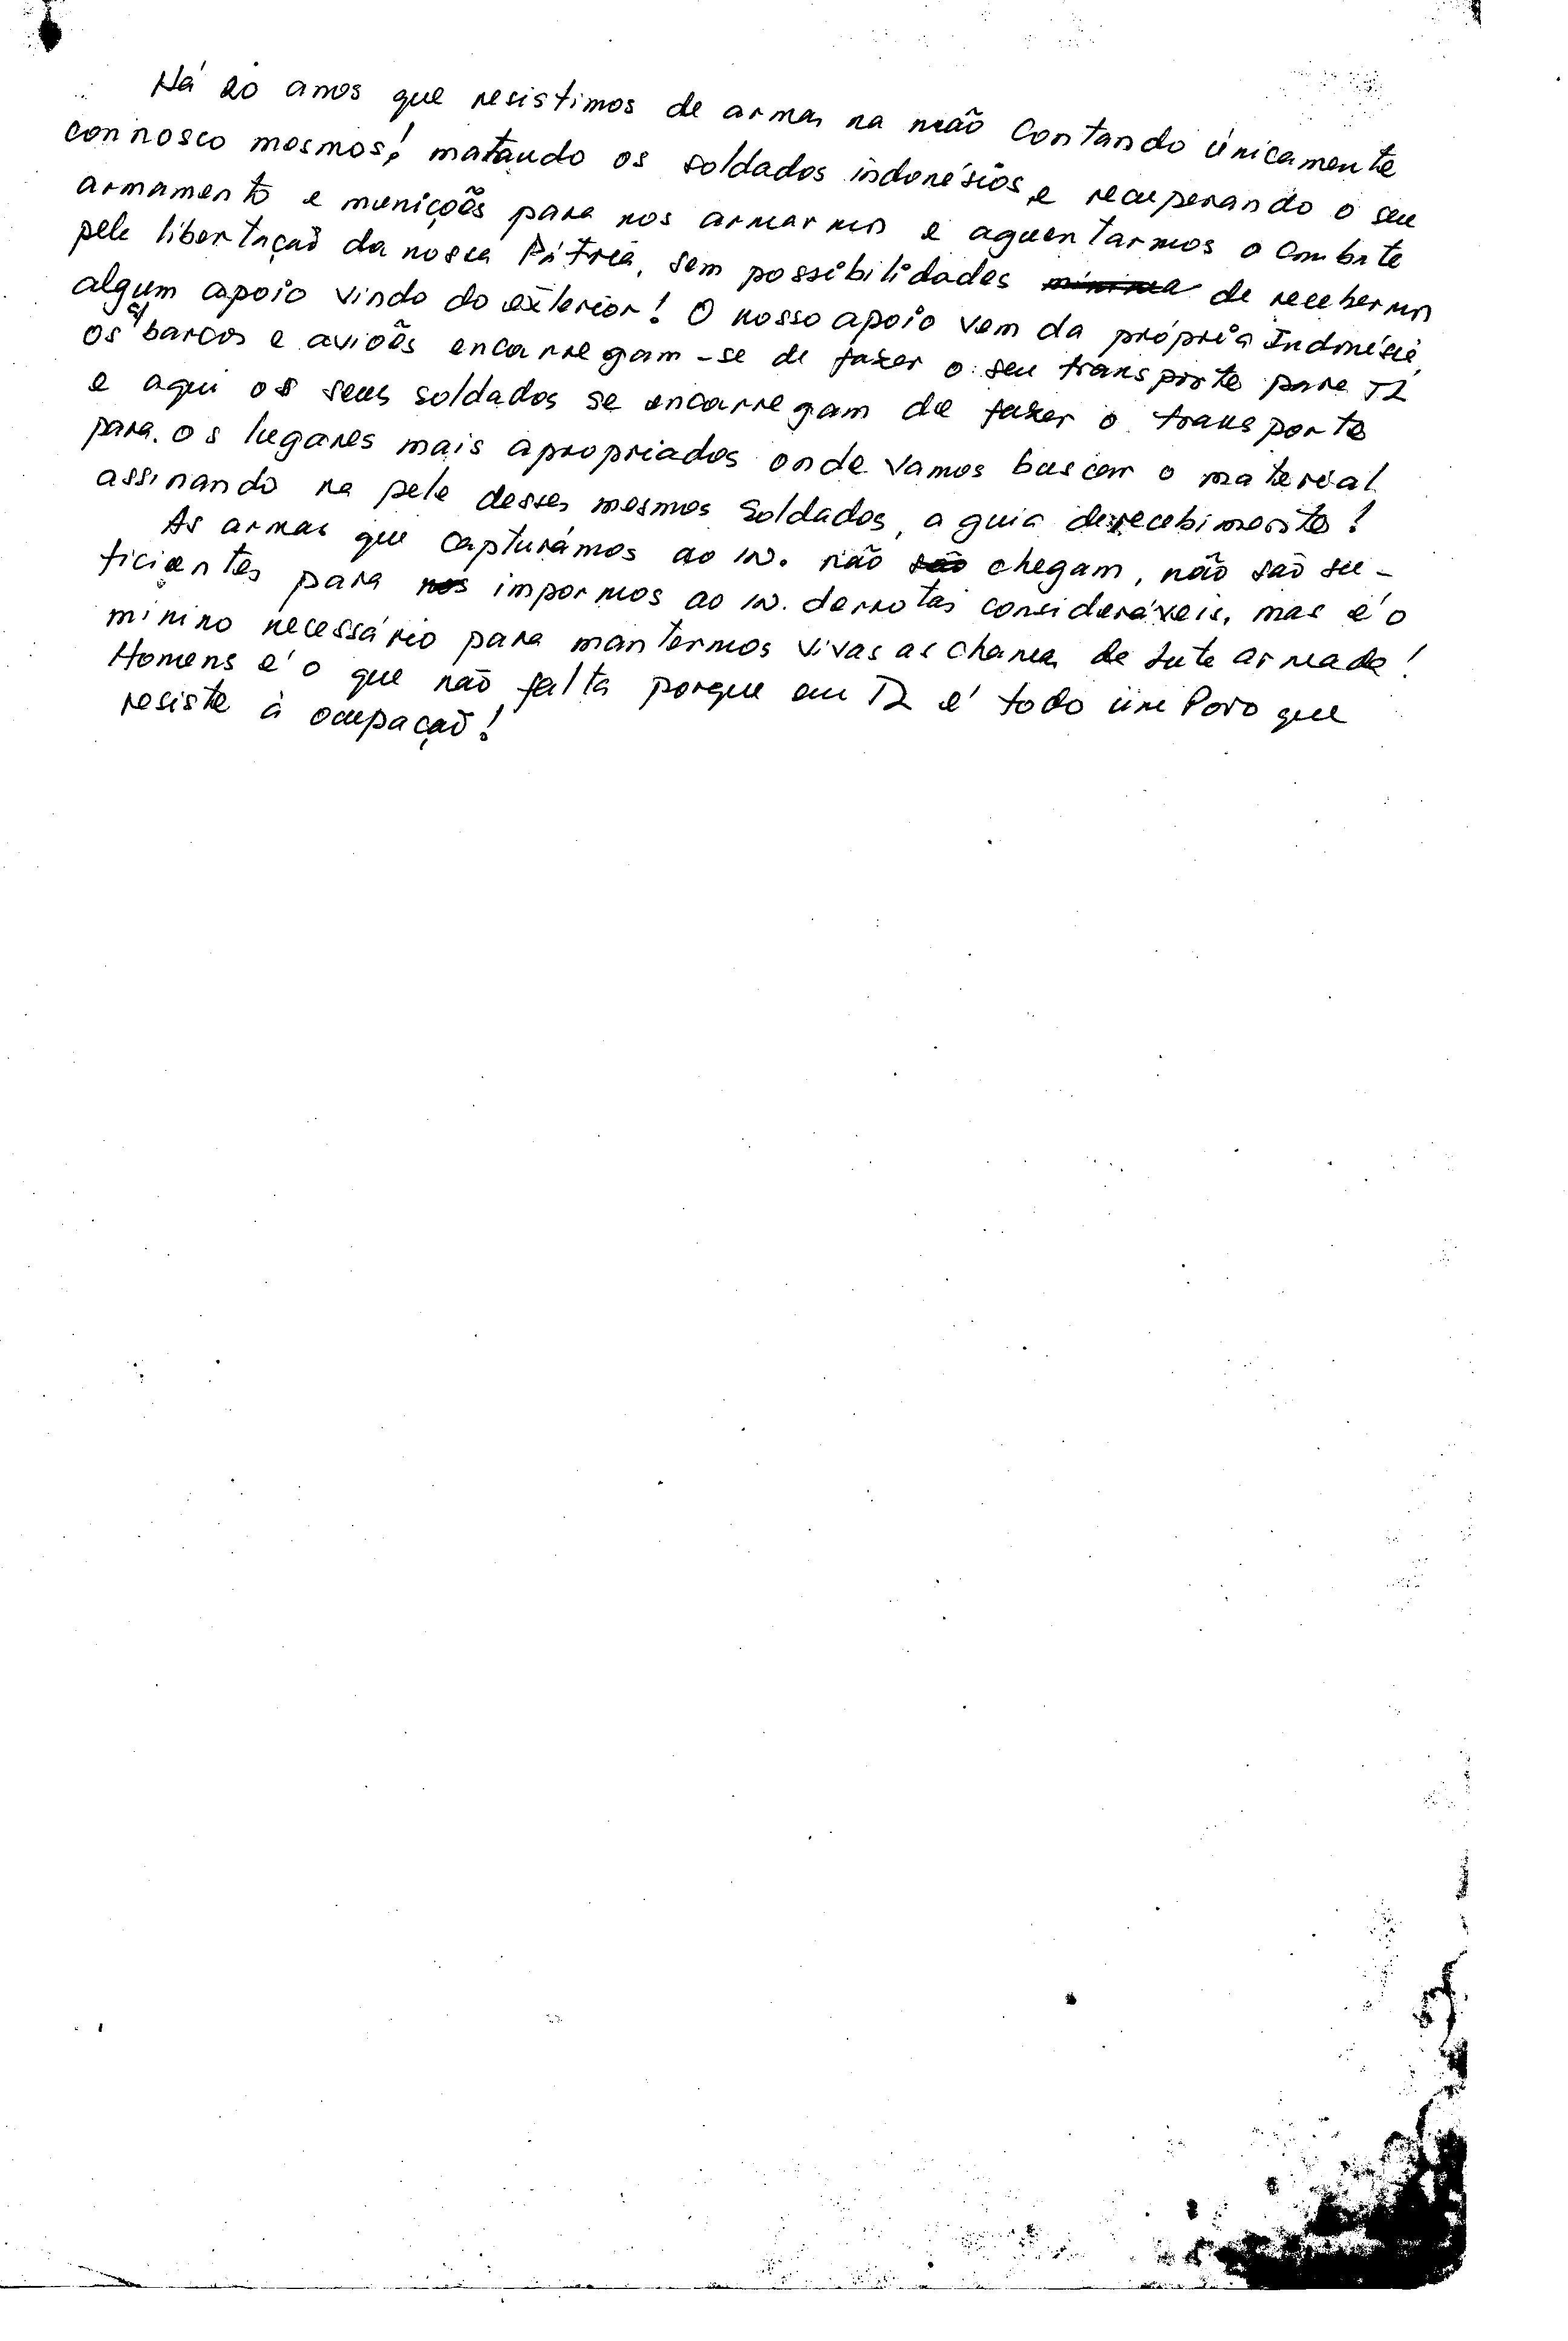 Há 20 anos que resistimos de armas na mão contando únicamente
connosco mesmos! matando os soldados indonésios, e recuperando o seu
armamento e munições para nos armarmos e aguentarmos o combate
pela libertação da nossa Pátria, sem possibilidades de recebermos
algum apoio vindo do exterior! O nosso apoio vem da própria Indonésia,
os barcos e aviões encarregam-se de fazer o seu transporte para TL
e aqui os seus soldados se encarregam de fazer o transporte
para os lugares mais apropriados onde vamos buscar o material
assinando na pele desses mesmos soldados, a guia de recebimento!
As armas que capturámos ao in. não chegam, não são su-
ficientes para impormos ao in. derrotas consideráveis, mas é o
mínimo necessário para mantermos vivas as chamas da Luta armada!
Homens é o que não falta porque em TL é todo um Povo que
resiste à ocupação!